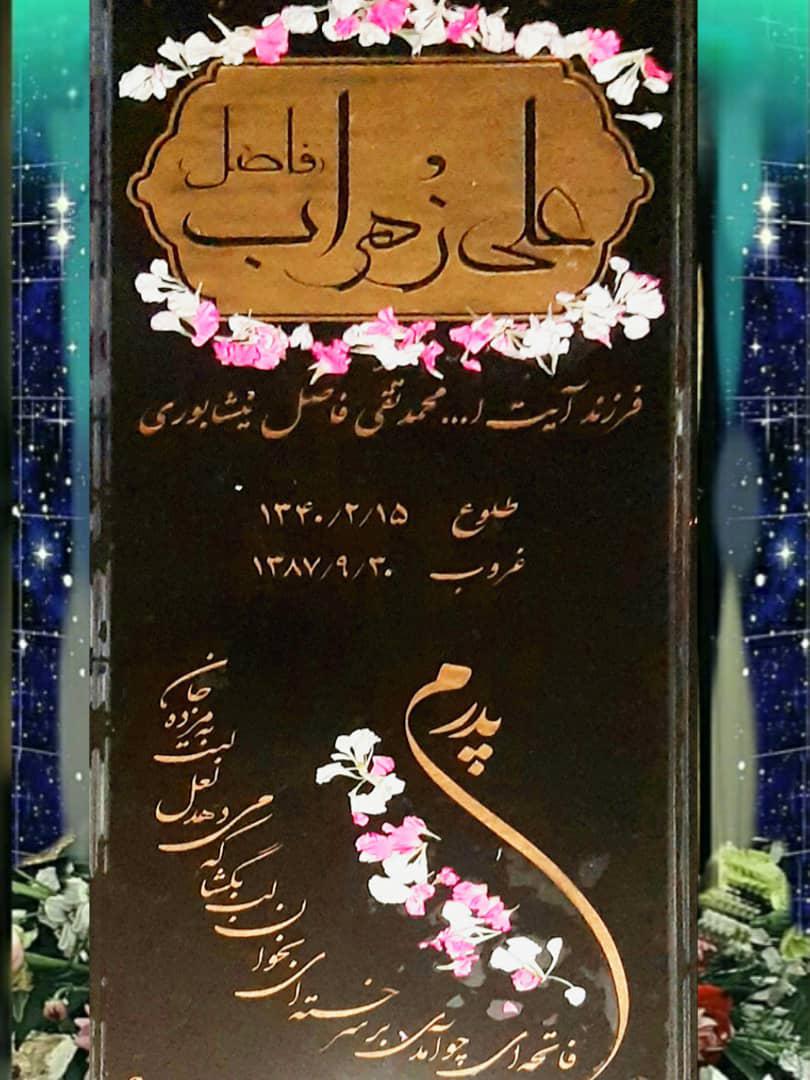 علی زُهراب (فاضل)
فرزند آیت ا... محمدتقی فاضل نیشابوری
طلوع ۱۳۴۰/۲/۱۵
غروب ۱۳۸۷/۹/۳۰
پدرم
فاتحه ای چو آمدی بر سر خسته ای بخوان
لب بگشا که می دهد لعل لبت به مرده جان